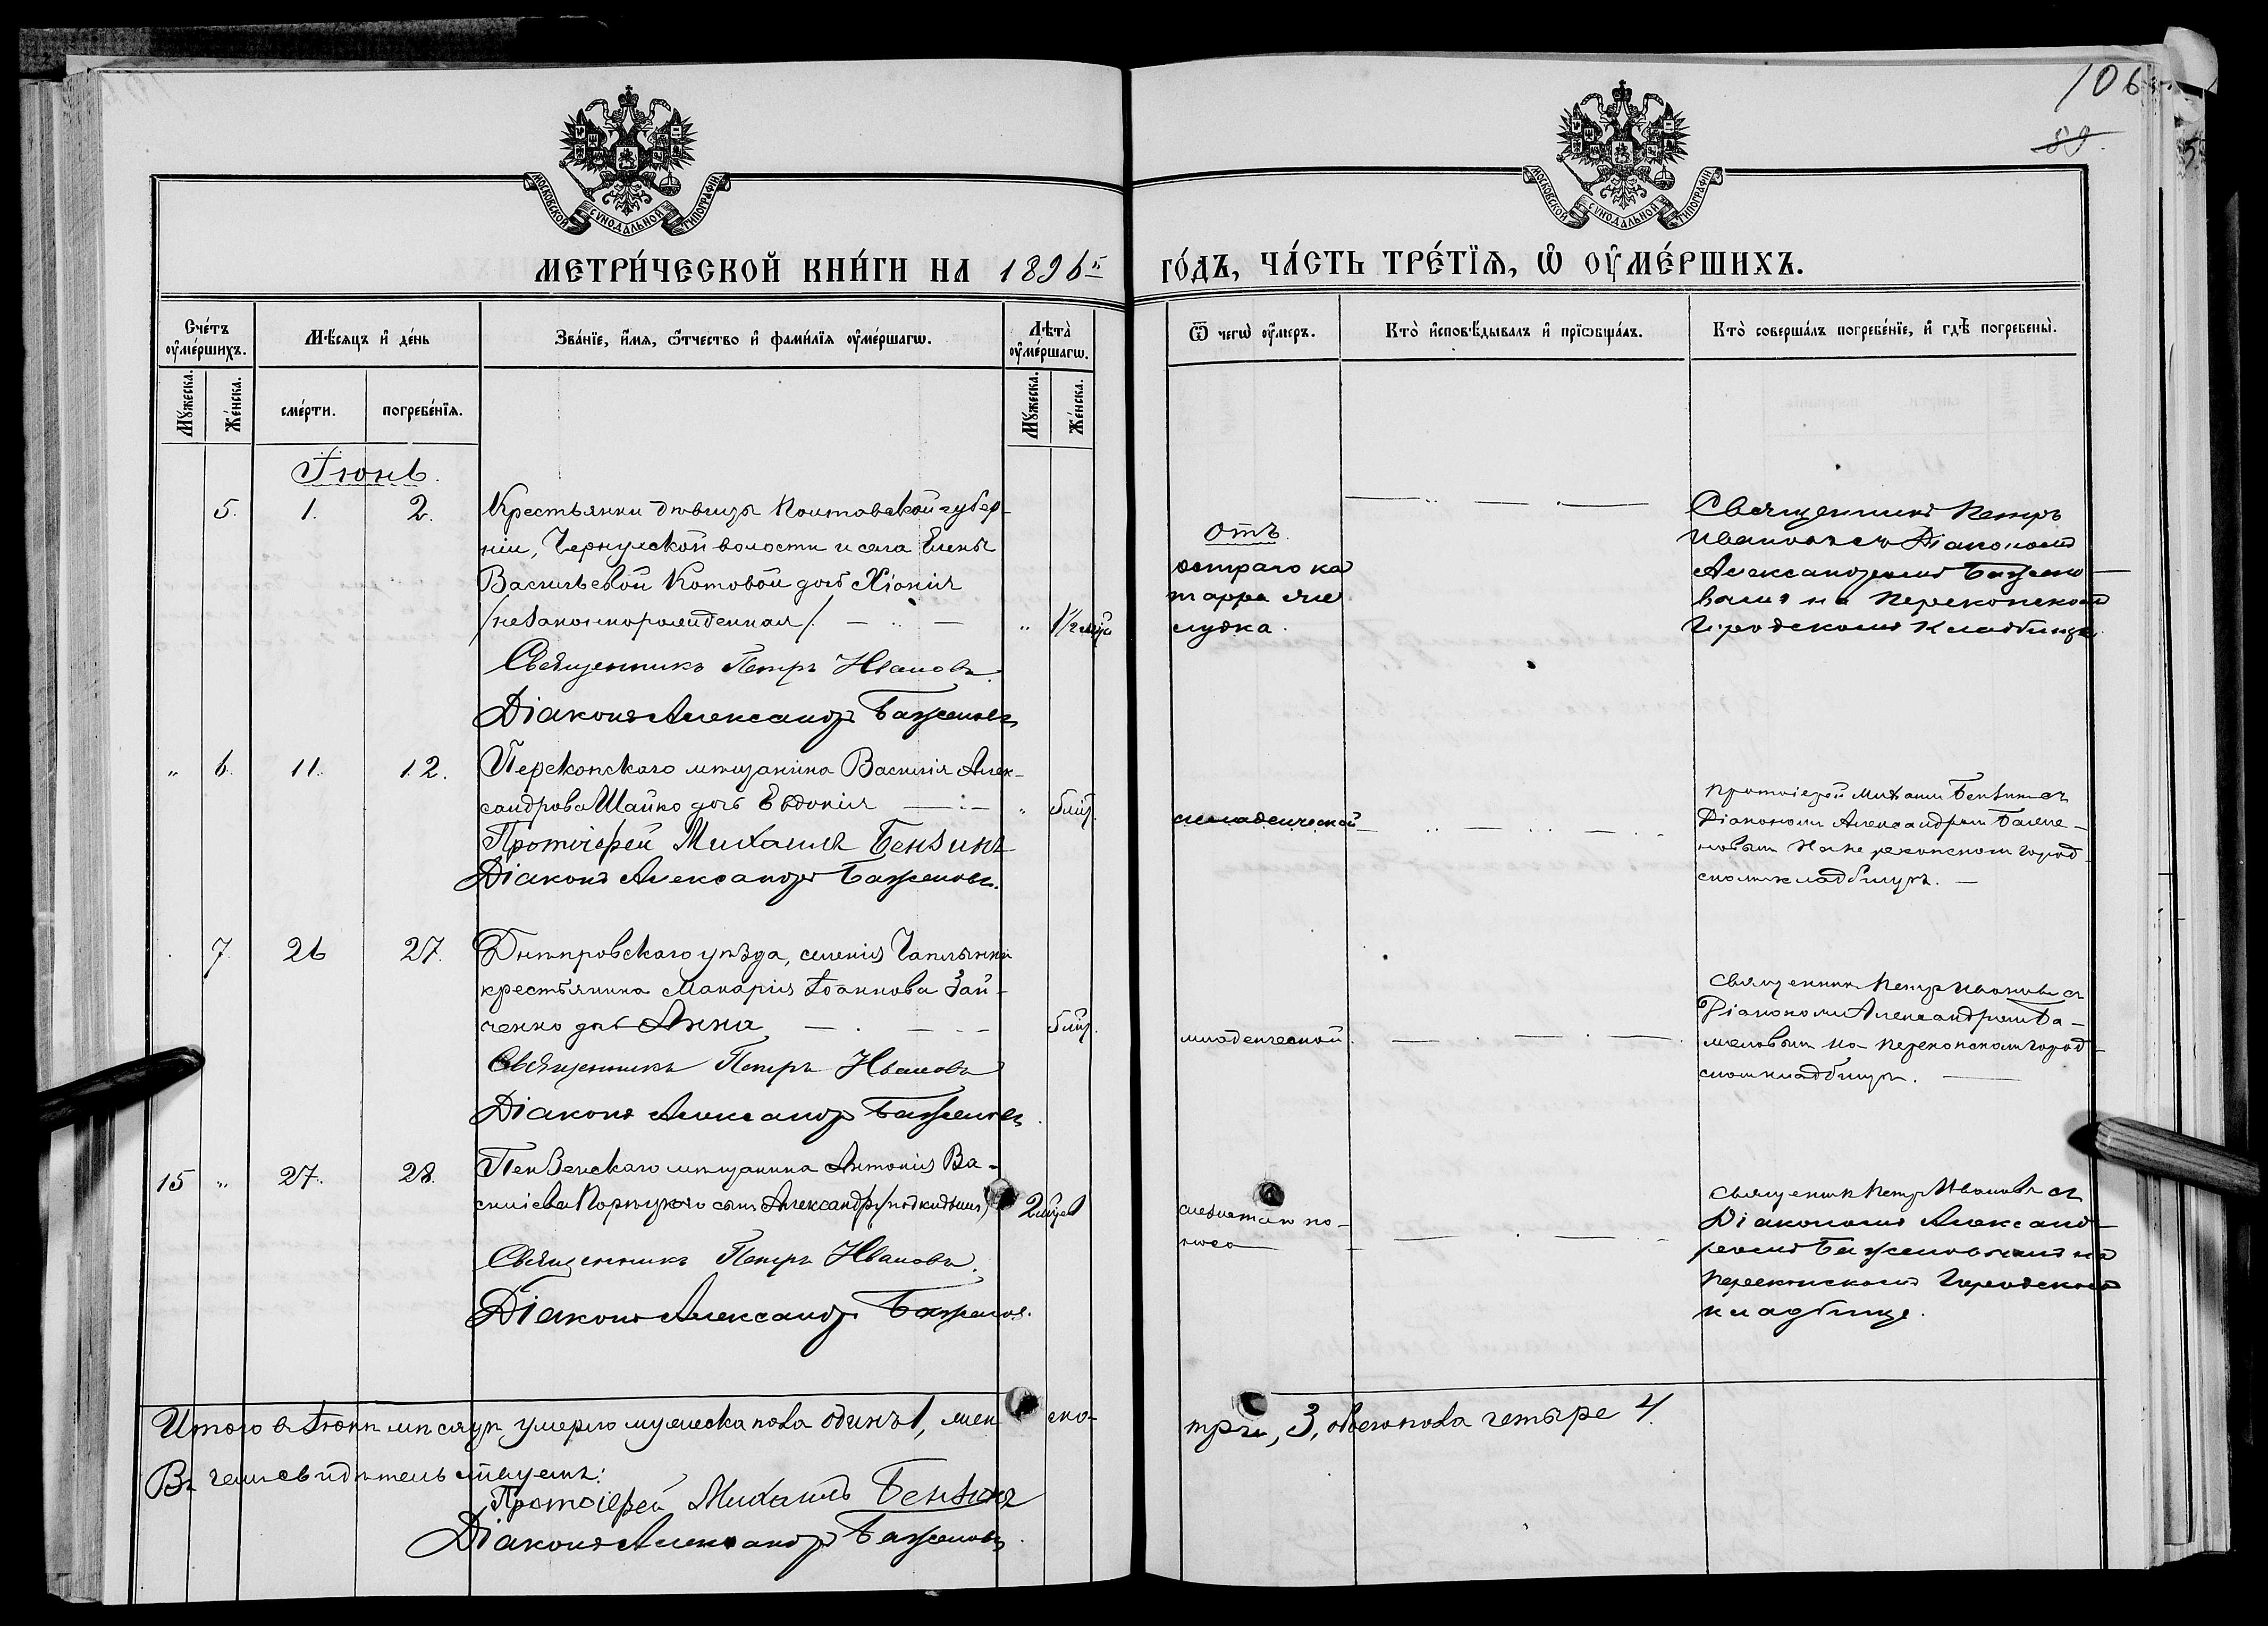 106
89.
МОСКОВСКОЙ СѴНОДАЛЬНОЙ ТИПОГРАФІИ
МОСКОВСКОЙ СѴНОДАЛЬНОЙ ТИПОГРАФІИ
МЕТРИ́ЧЕСКОЙ КНИ́ГИ НА 1896й го́дъ, ЧА́СТЬ ТРЕ́ТЇѦ, Ѡ ОУМЕ́РШИХЪ.
Сче́тъ оуме́ршихъ.
Мѣ́сяцъ и де́нь
Зва́нїе, и́мя, ѻтчество и фами́лїя оуме́ршагѡ.
Лѣта̀ оуме́ршагѡ.
Ѿ чегѡ̀ оу́меръ.
Кто̀ исповѣ́дывалъ и прїѡбща́лъ.
Кто̀ соверша́лъ погребе́нїе, и гдѣ̀ погребены̀.
Мꙋ́жеска.
Же́нска.
сме́рти.
погребе́нїя.
Мꙋ́жеска.
Же́нска.
Іюнь.
5.
1.
2.
Крестьянки дѣвицы Полтавской губер-
ніи, Чернухской волости и села Елены
Васильевой Котовой дочь Хіонія
/незаконнорожденная/.
" 1½ мѣс
Священникъ Петръ Ивановъ.
Діаконъ Александръ Баженовъ
Отъ
остраго ка
тарра же
лудка.
Священникъ Петръ
Ивановъ съ Діакономъ
Александромъ Бажено
вымъ на Перекопскомъ
Городскомъ Кладбищѣ.
" 6.
11.
12.
Перекопскаго мѣщанина Василія Алек-
сандрова Шайко дочь Евдокія
"
Протоіерей Михаилъ Бензинъ
Діаконъ Александръ Баженовъ.
младенческой
Протоіерей Михаилъ Бензинъ съ
Діакономъ Александромъ Баже-
новымъ на перекопскомъ город-
скомъ кладбищѣ.
7.
26
27.
Днѣпровскаго уѣзда, селенія Чаплынки
крестьянина Макарія Іоаннова Зай-
ченко дочь Анна
Священникъ Петръ Ивановъ
Діаконъ Александръ Баженовъ.
младенческой
Священникъ Петръ Ивановъ съ
Діакономъ Александромъ Ба-
женовымъ на перекопскомъ город-
скомъ кладбищѣ.
15 "
27.
28.
Пензенскаго мѣщанина Антонія Ва-
силіева сынъ Александръ /подкидышъ/
Священникъ Петръ Ивановъ.
Діаконъ Александръ Баженовъ.
по-
носа
Священникъ Петръ Ивановъ съ
Діакономъ Александ-
ромъ Баженовымъ на
перекопскомъ Городскомъ
кладбище.
Итого въ Іюнѣ мѣсяцѣ умерло мужеска пола одинъ 1, жен ска- три, 3, обоего пола четыре 4.
Въ чемъ свидѣтельствуемъ:
Протоіерей Михаилъ Бензинъ
Діаконъ Александръ Баженовъ.